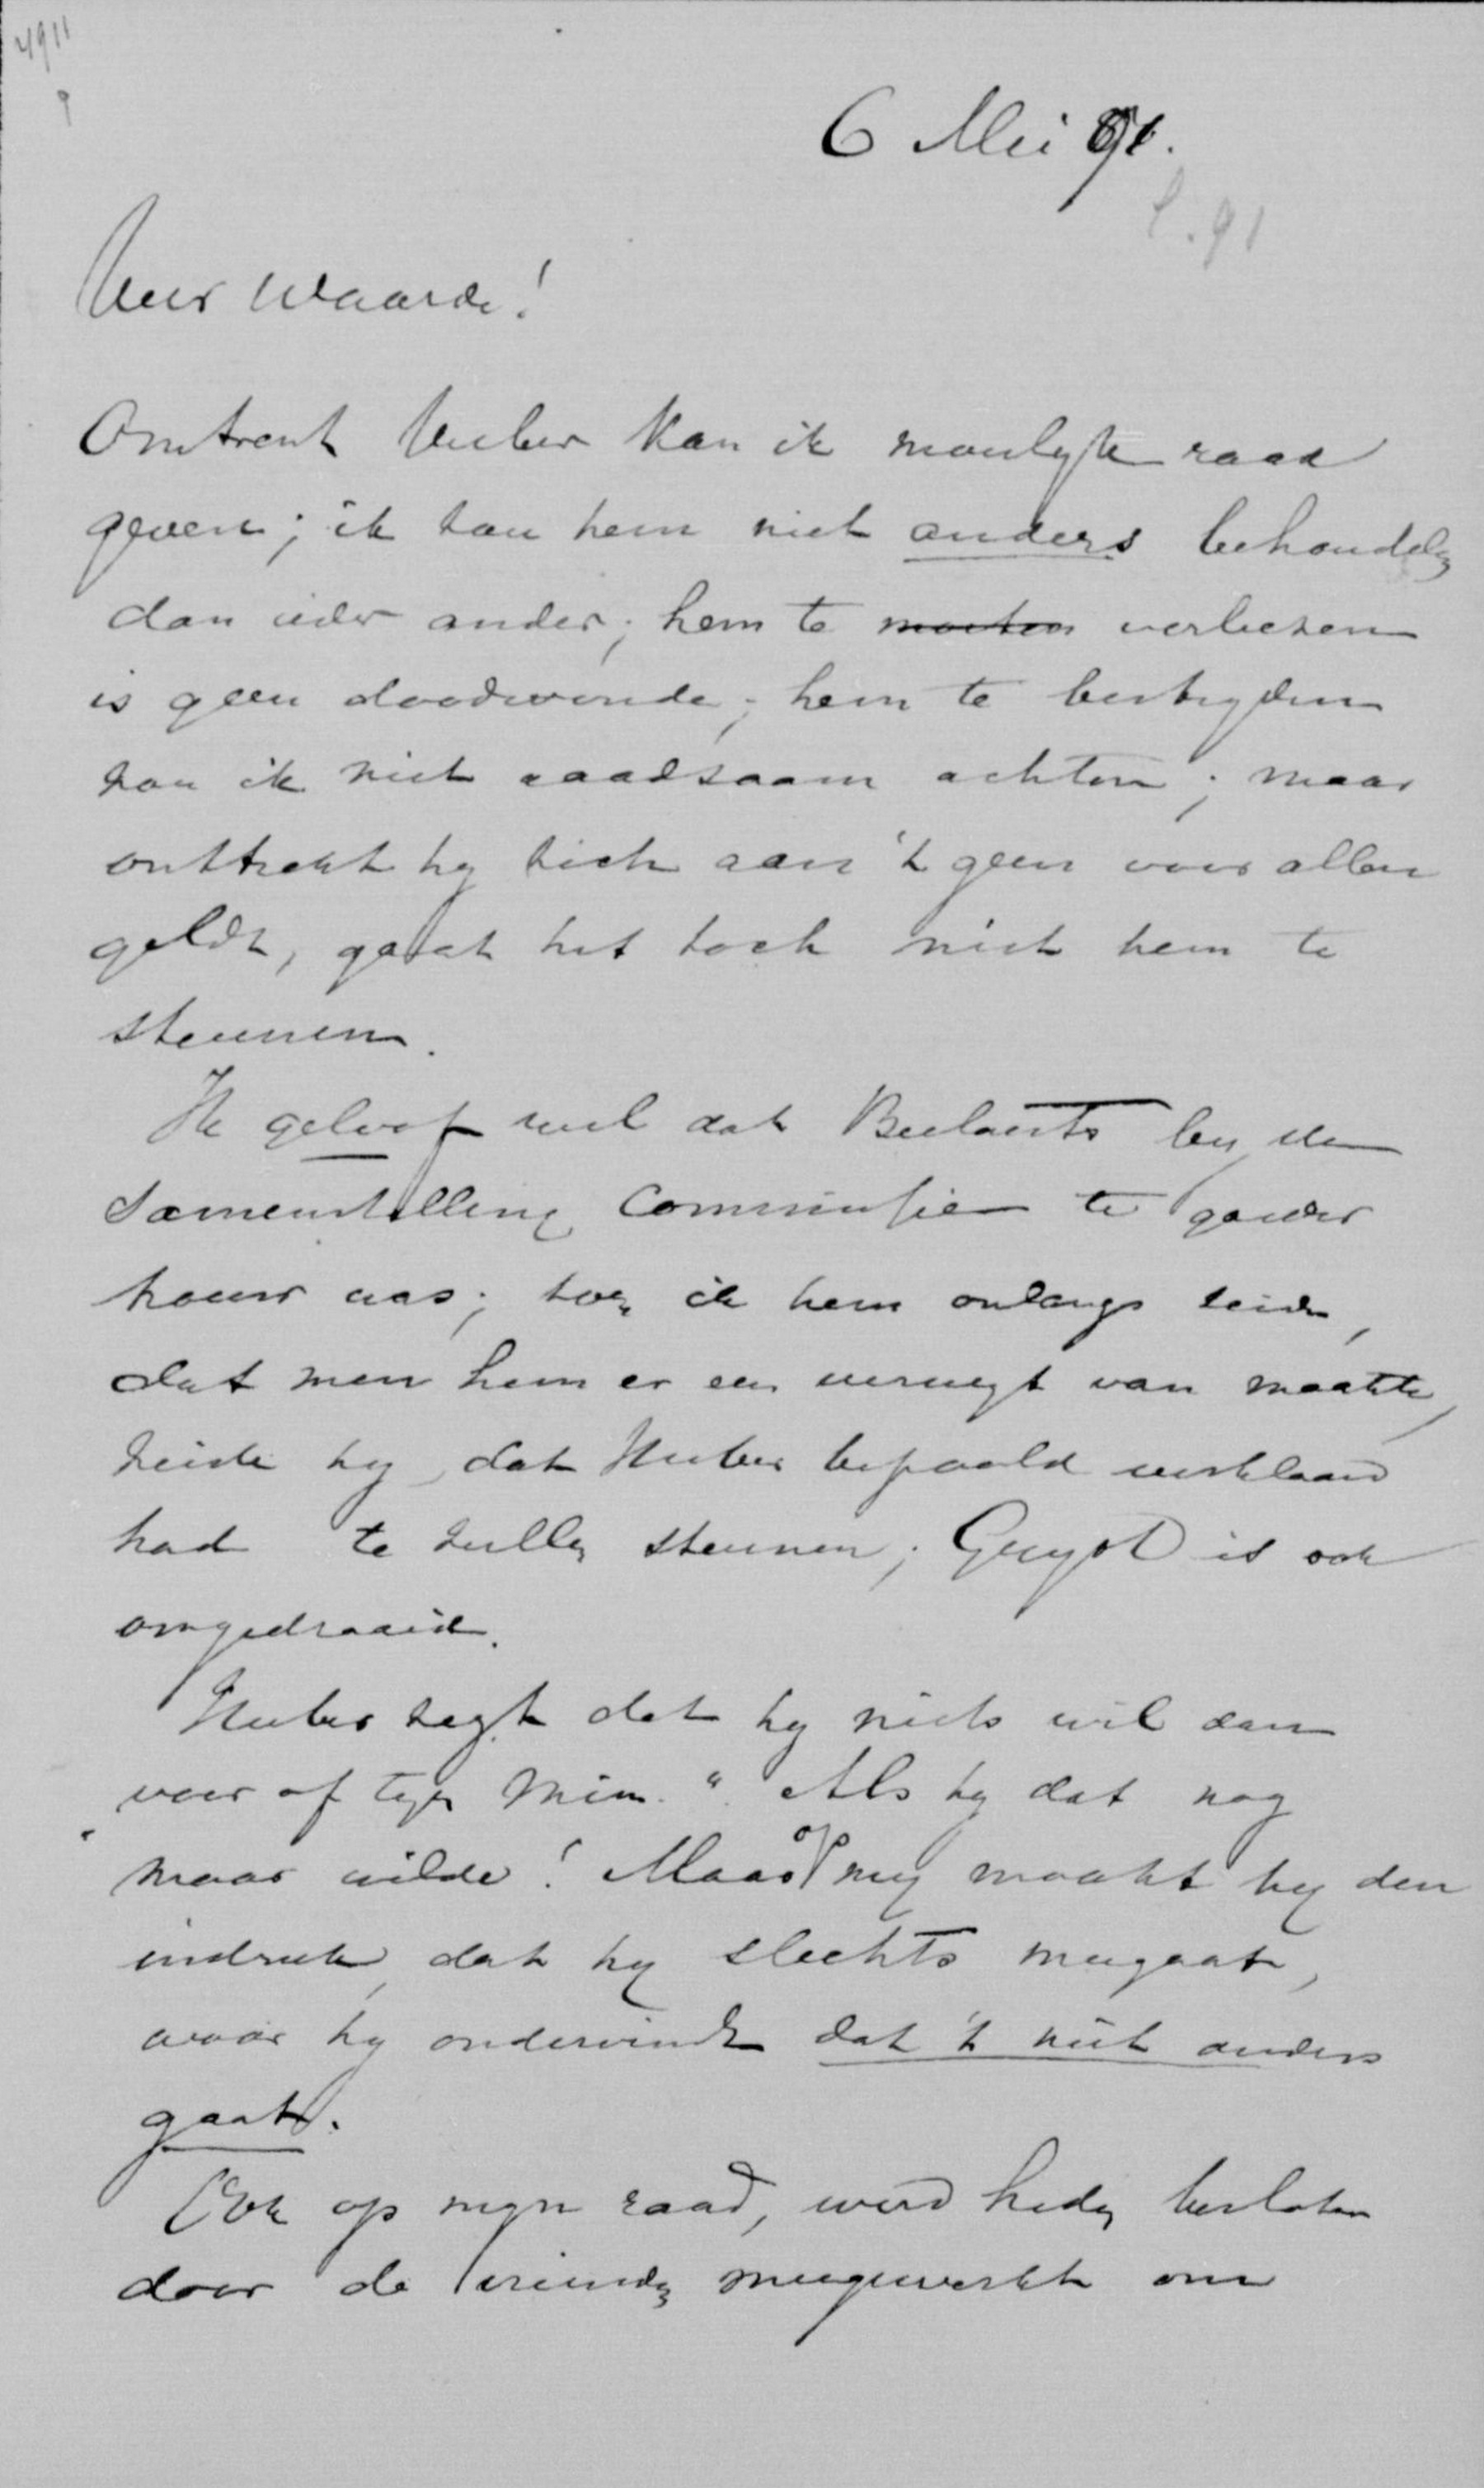 4911
6 Mei 91.
91
Zeer Waarde!
Omtrent Huber kan ik moeilyk raad
geven; ik zou hem niet anders behandelen
dan ieder ander; hem te moeten verliezen
is geen doodwonde; hem te bestryden
zou ik niet raadzaam achten; maar
onttrekt hy zich aan 't geen voor allen
geldt, gaat het toch niet hem te
steunen.
Ik geloof wel dat Beelaerts by de
samenstelling Commissien te goeder
trouw was; toen ik hem onlangs zeide,
dat men hem er een verwyt van maakte,
zeide hy, dat Huber bepaald verklaard
had te zullen steunen; Guyot is ook
omgedraaid.
Huber zegt dat hy niets wil dan
"voor of tegen Min." Als hy dat nog
maar wilde! Maar op my maakt hy den
indruk, dat hy slechts meegaat,
waar hy ondervindt dat 't niet anders
gaat.
Ook op myn raad, werd heden besloten
door de vrienden meegewerkt om